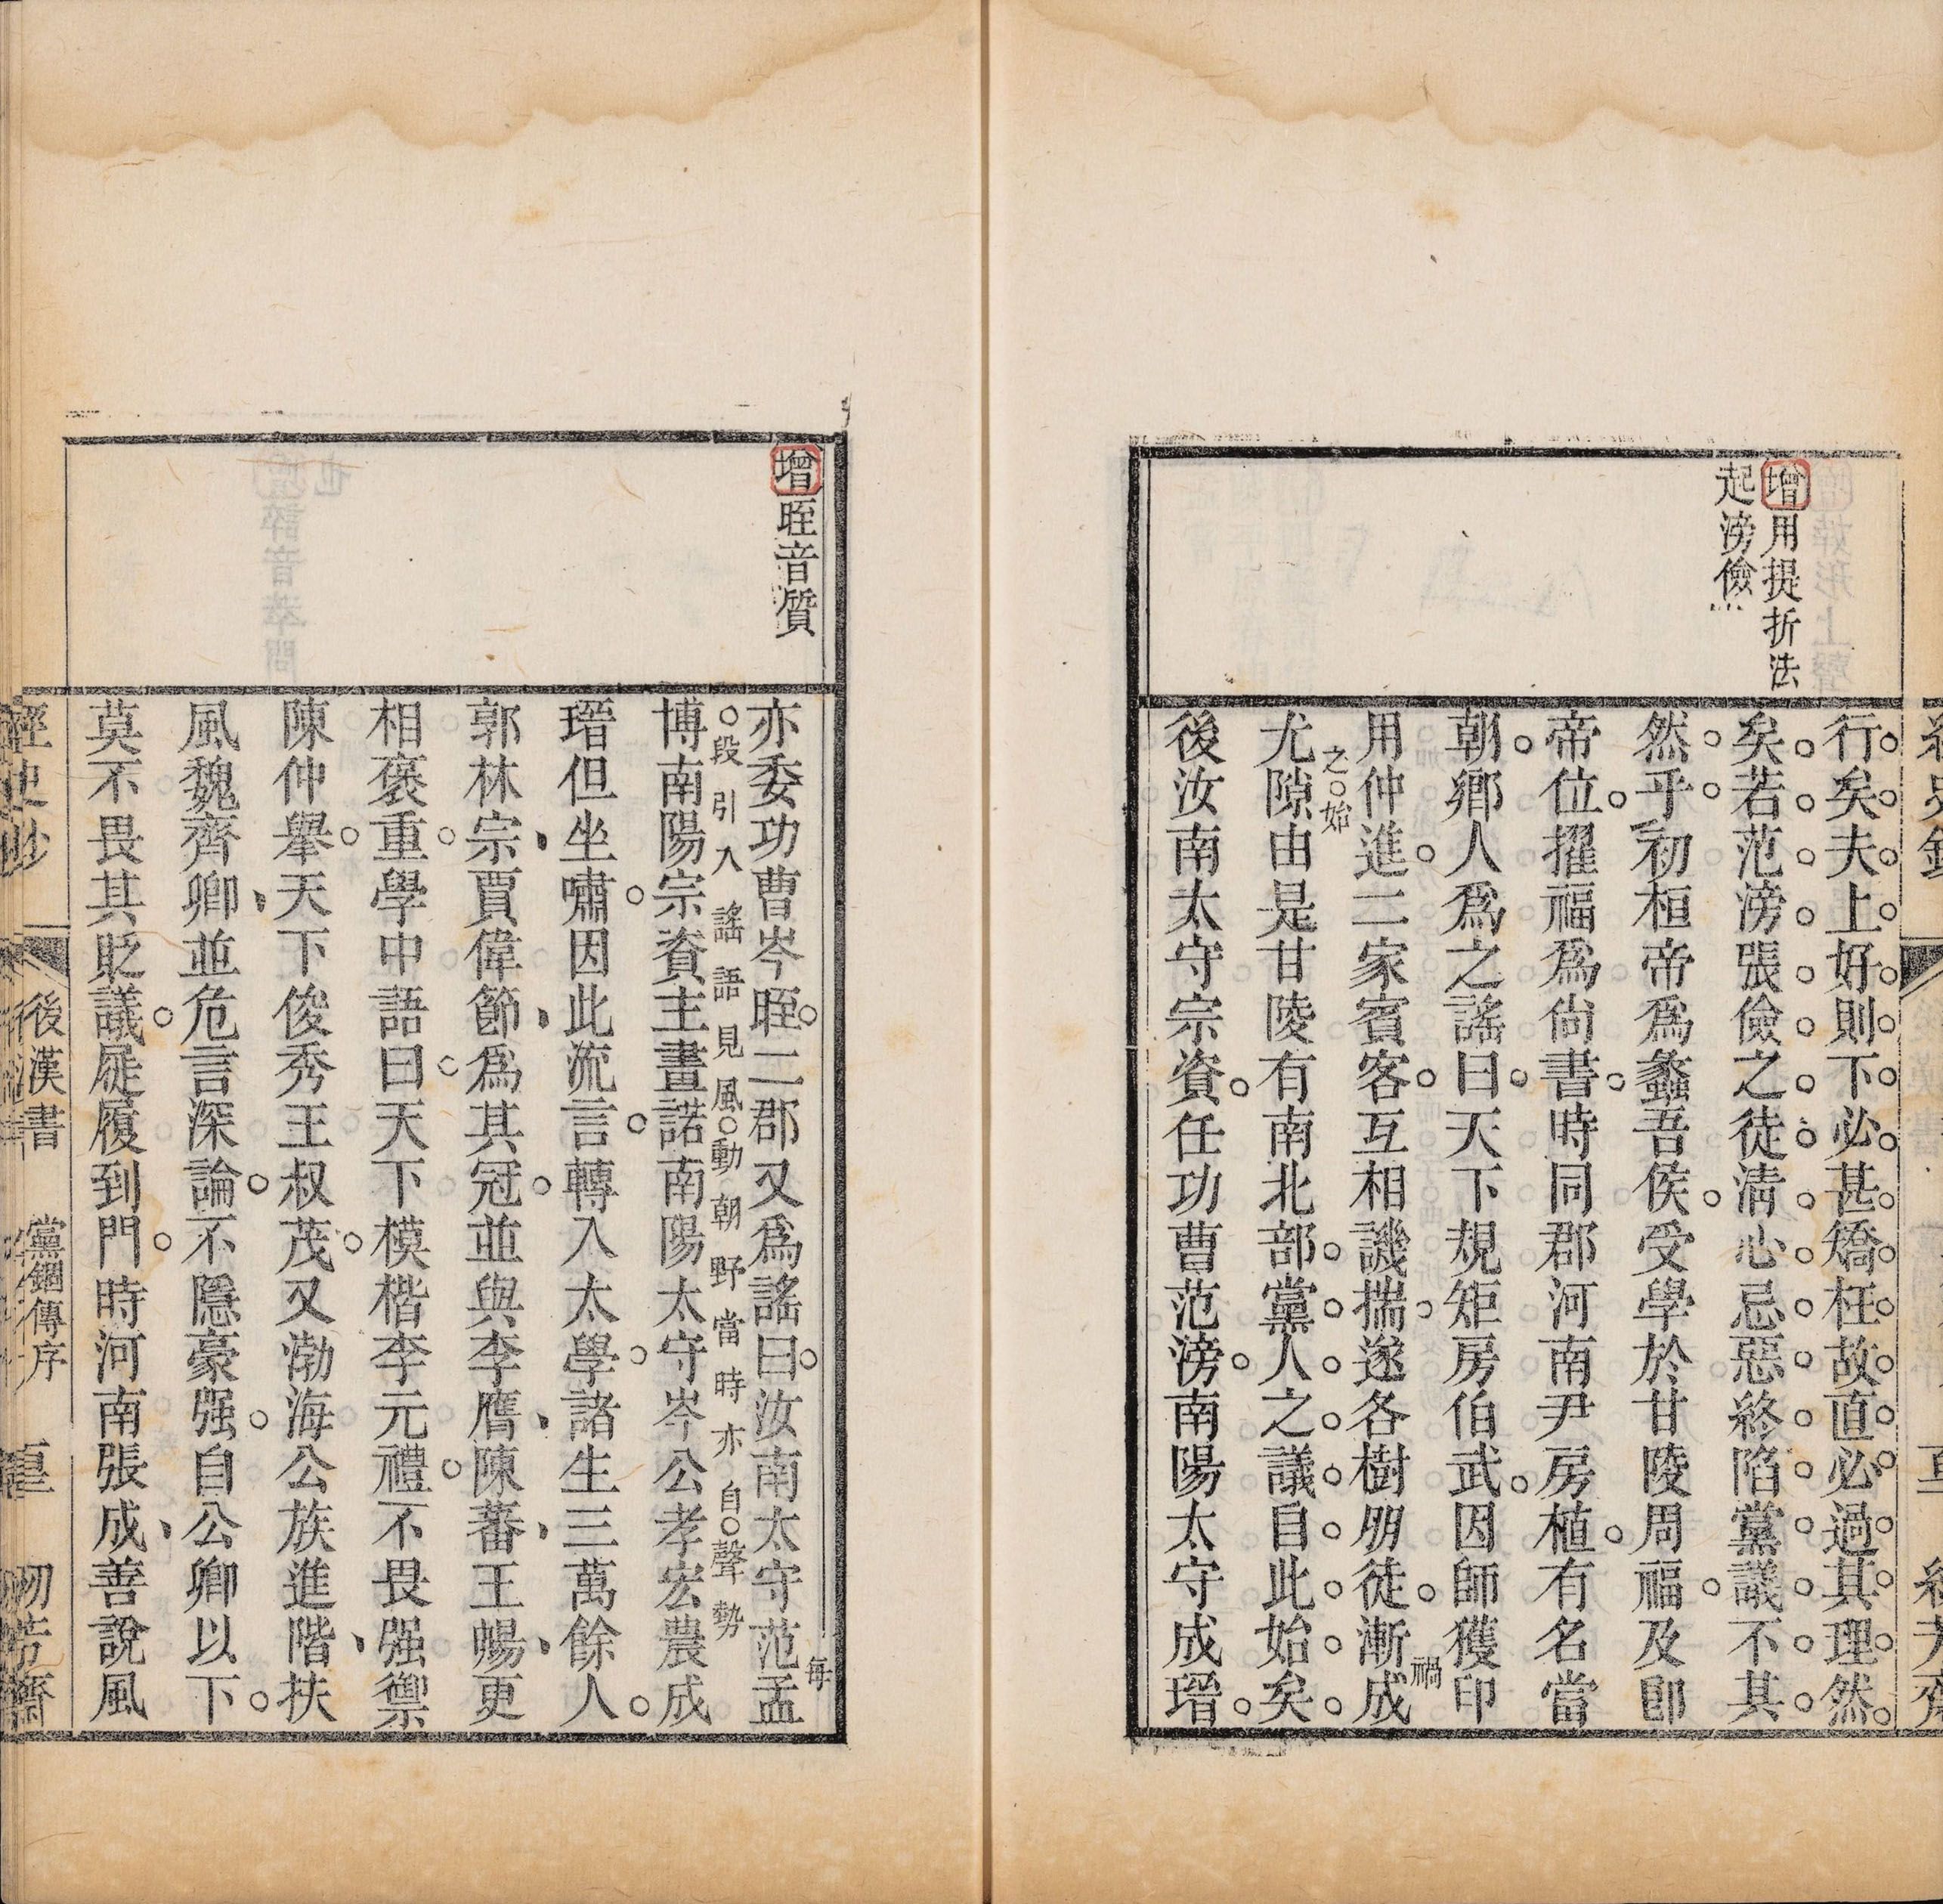 增用提折法
起滂儉
行矣夫上好則下必甚矯枉故直必過其理然
矣若范滂張儉之徒淸心忌惡終陷黨議不其
然乎初桓帝爲蠡吾侯受學於甘陵周福及卽
帝位擢福爲尙書時同郡河南尹房植有名當
朝鄉人爲之謠曰天下規矩房伯武因師獲印
用仲進二家賓客互相譏揣遂各樹朋徒漸成
禍
之始
尤隙由是甘陵有南北部黨人之議自此始矣
後汝南太守宗資任功曹范滂南陽太守成瑨
增晊音質
每
亦委功曹岑晊二郡又爲謠曰汝南太守范孟
段引入謠語見風動朝野當時亦自聲勢
博南陽宗資主畫諾南陽太守岑公孝宏農成
瑨但坐嘯因此流言轉入太學諸生三萬餘人
郭林宗賈偉節爲其冠並與李膺陳蕃王暢更
相褒重學中語曰天下模楷李元禮不畏强禦
陳仲舉天下俊秀王叔茂又渤海公族進階扶
風魏齊卿並危言深論不隱豪强自公卿以下
莫不畏其貶議屣履到門時河南張成善說風
後漢書 黨錮傳序